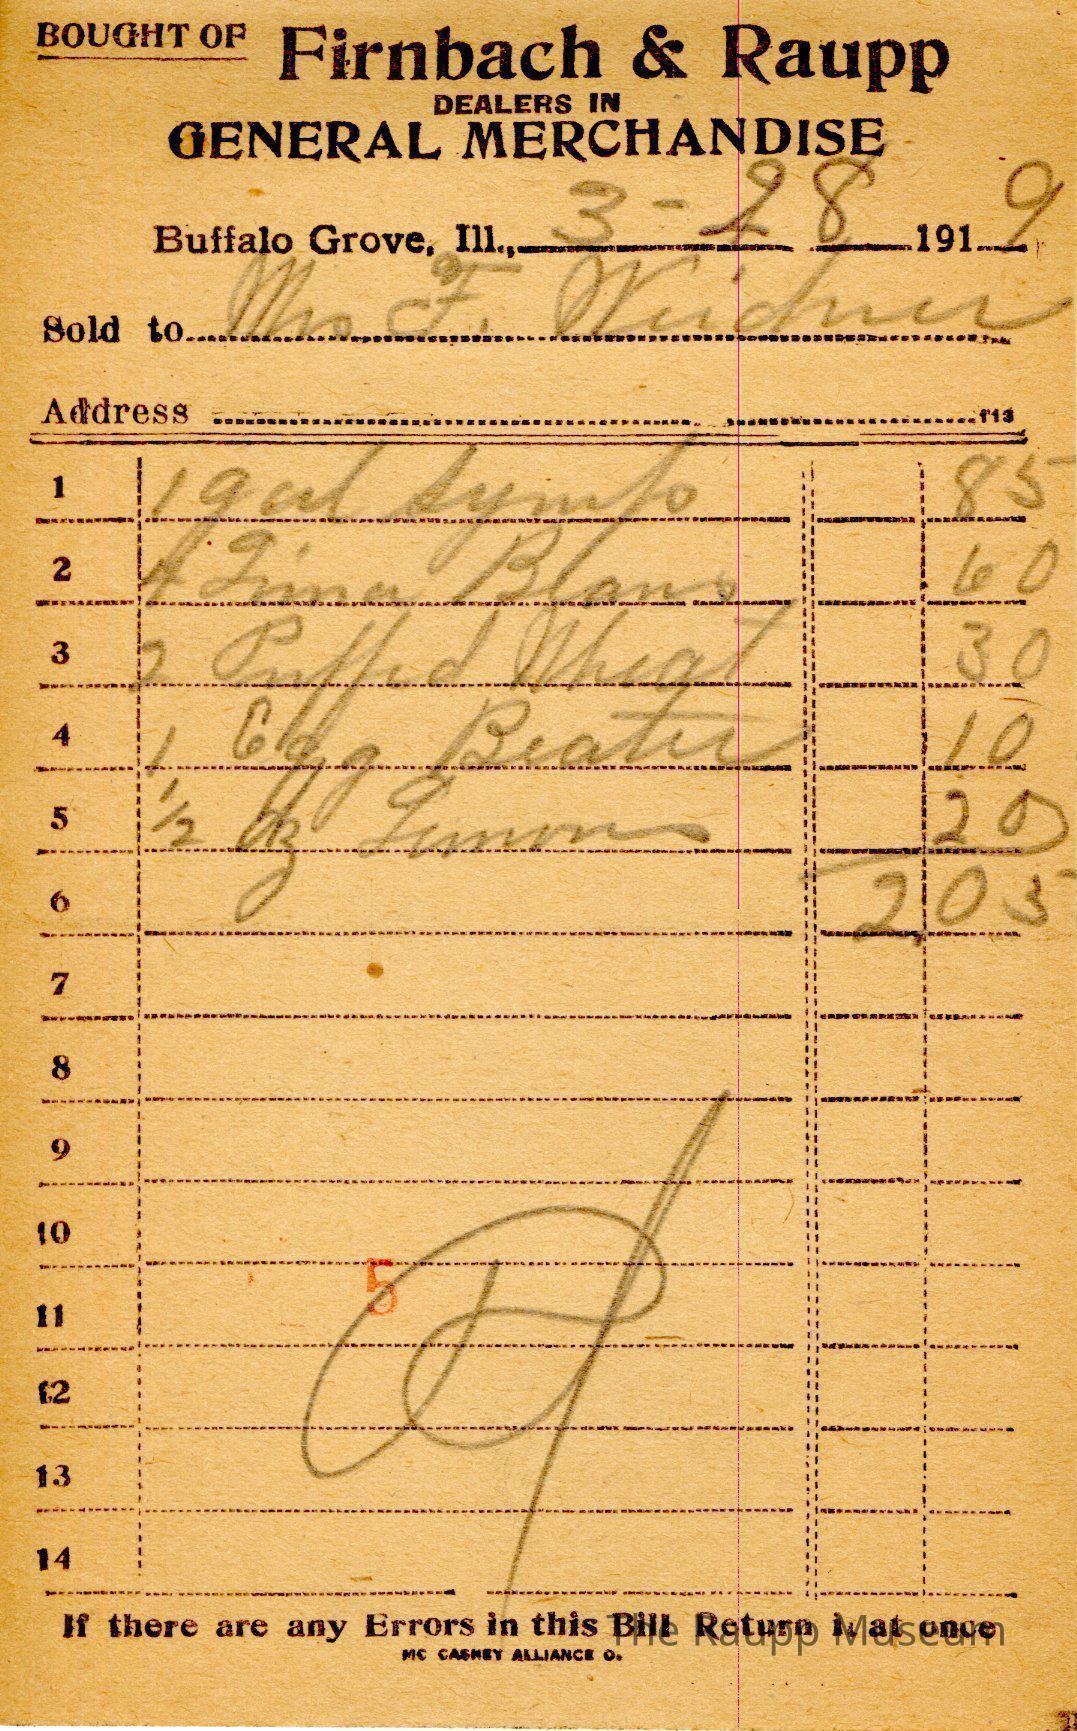 BOUGHT OF Firnbach & Raupp
DEALERS IN
GENERAL MERCHANDISE
Buffalo Grove, Ill., 3-28 1919
Sold to Mrs F. Weidner
Address f13
1 1 gal Syrup 85
2 4 Lima Beans 60
3 2 Puffed Wheat 30
4 1 Egg Beater 10
5 1/2 Dz Lemons 20
6 2 05
7
8
9
10
5
11
12
13
14
If there are any Errors in this Bill Return it at once
The Raupp Museum
MC CASKEY ALLIANCE O.